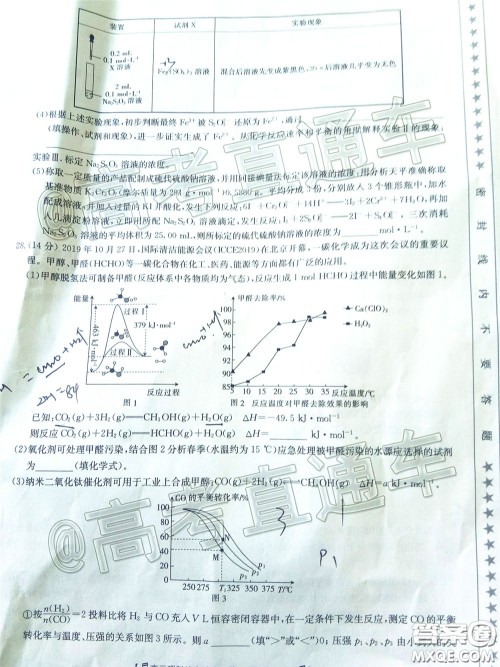 装置
试剂 X
实验现象
0.2 mL
0.1 mol·L⁻¹
X 溶液
2 mL
0.1 mol·L⁻¹
Na₂S₂O₃ 溶液
Fe₂(SO₄)₃ 溶液
混合后溶液先变成紫黑色,30 s 后溶液几乎变为无色
(4)根据上述实验现象,初步判断最终 Fe³⁺ 被 S₂O₃²⁻ 还原为 Fe²⁺,通过
(填操作、试剂和现象),进一步证实生成了 Fe²⁺。从化学反应速率和平衡的角度解释实验Ⅱ的现象:
实验Ⅲ.标定 Na₂S₂O₃ 溶液的浓度。
(5)称取一定质量的产品配制成硫代硫酸钠溶液,并用间接碘量法标定该溶液的浓度:用分析天平准确称取
基准物质 K₂Cr₂O₇(摩尔质量为 294 g·mol⁻¹)0.5880 g。平均分成 3 份,分别放入 3 个锥形瓶中,加水
配成溶液,并加入过量的 KI 并酸化,发生下列反应:6I⁻+Cr₂O₇²⁻+14H⁺══3I₂+2Cr³⁺+7H₂O,再加
入几滴淀粉溶液,立即用所配 Na₂S₂O₃ 溶液滴定,发生反应 I₂+2S₂O₃²⁻══2I⁻+S₄O₆²⁻,三次消耗
Na₂S₂O₃ 溶液的平均体积为 25.00 mL,则所标定的硫代硫酸钠溶液的浓度为 mol·L⁻¹。
28.(14 分) 2019 年 10 月 27 日,国际清洁能源会议(ICCE2019)在北京开幕,一碳化学成为这次会议的重要议
程。甲醇、甲醛(HCHO)等一碳化合物在化工、医药、能源等方面都有广泛的应用。
(1)甲醇脱氢法可制备甲醛(反应体系中各物质均为气态),反应生成 1 mol HCHO 过程中能量变化如图 1。
能量
过程Ⅰ
379 kJ·mol⁻¹
463 kJ·mol⁻¹
过程Ⅱ
反应过程
图 1
甲醛去除率/%
100
95
90
85
80
Ca(ClO)₂
H₂O₂
5 10 15 20 25 30 35 反应温度/℃
图 2 反应温度对甲醛去除效果的影响
已知:CO₂(g)+3H₂(g)══CH₃OH(g)+H₂O(g) ΔH=-49.5 kJ·mol⁻¹
则反应 CO₂(g)+2H₂(g)══HCHO(g)+H₂O(g) ΔH= kJ·mol⁻¹
(2)氧化剂可处理甲醛污染,结合图 2 分析春季(水温约为 15 ℃)应急处理被甲醛污染的水源应选择的试剂
为 (填化学式)。
(3)纳米二氧化钛催化剂可用于工业上合成甲醇:CO(g)+2H₂(g)⇌CH₃OH(g) ΔH=a kJ·mol⁻¹
CO 的平衡转化率/%
N
M
p₁
p₂
p₃
250 275 T₁ 325 350 T/℃
图 3
3
P₁
①按n(H₂)/n(CO)=2 投料比将 H₂ 与 CO 充入 V L 恒容密闭容器中,在一定条件下发生反应,测定 CO 的平衡
转化率与温度、压强的关系如图 3 所示。则 a (填“>”或“<”)0;压强 p₁、p₂、p₃ 由小到大
密封线内不要答题
@高考直通车
@高考直通车